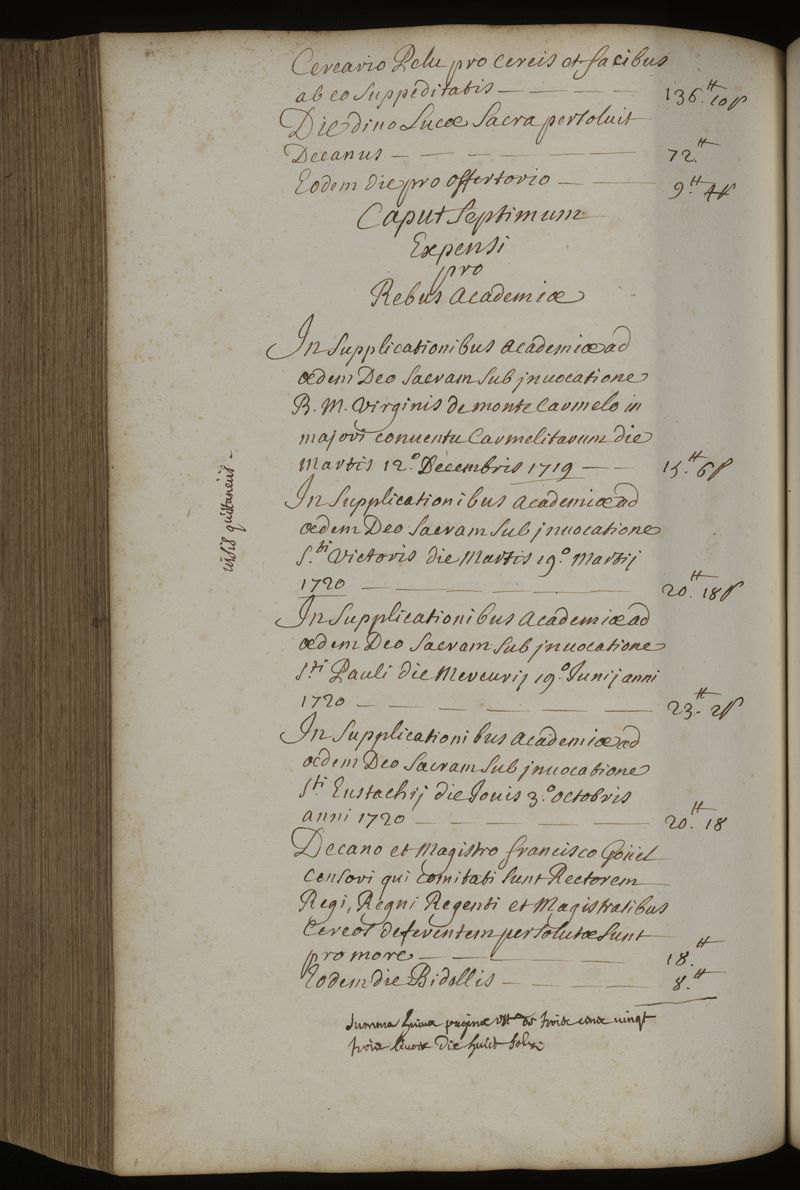 Cereario Pelu pro cereis et facibus
ab eo suppeditatis — — — — 136.tt 10ſ
Die dino Lucæ sacra persoluit
Decanus — — — — 72.tt
Eodem die pro offertorio — — 9.tt 4ſ
Caput Septimum
Expensi
pro
Rebus Academiæ
In supplicationibus Academiæ ad
ædem Deo sacram sub jnuocatione
B. M. Virginis de monte Carmelo in
majori conuentu Carmelitarum die
Martis 12.o Decembris 1719 — — 15.tt 6ſ
visis quittanciis.
In supplicationibus Academiæ ad
ædem Deo sacram sub jnuocatione
S.ti Victoris die Martis 19.o Martij
1720 — — — — 20.tt 18ſ
In supplicationibus Academiæ ad
ædem Deo sacram sub jnuocatione
S.ti Pauli die Mercurij 19.o Junij anni
1720 — — — — — 23.tt 2ſ
In supplicationibus Academiæ ad
ædem Deo sacram sub jnuocatione
S.ti Eustachij die Jouis 3.o octobris
anni 1720 — — — — 20.tt 18
Decano et Magistro francisco
Censori qui comitati sunt Rectorem
Regi, Regni Regenti et Magistratibus
Cereos deferentem persolutæ sunt
pro more — — — — 18.tt
Eodem die Bidellis — — — 8.tt
Summa huius paginæ est de trois cens vingt
trois liures dix huict sols